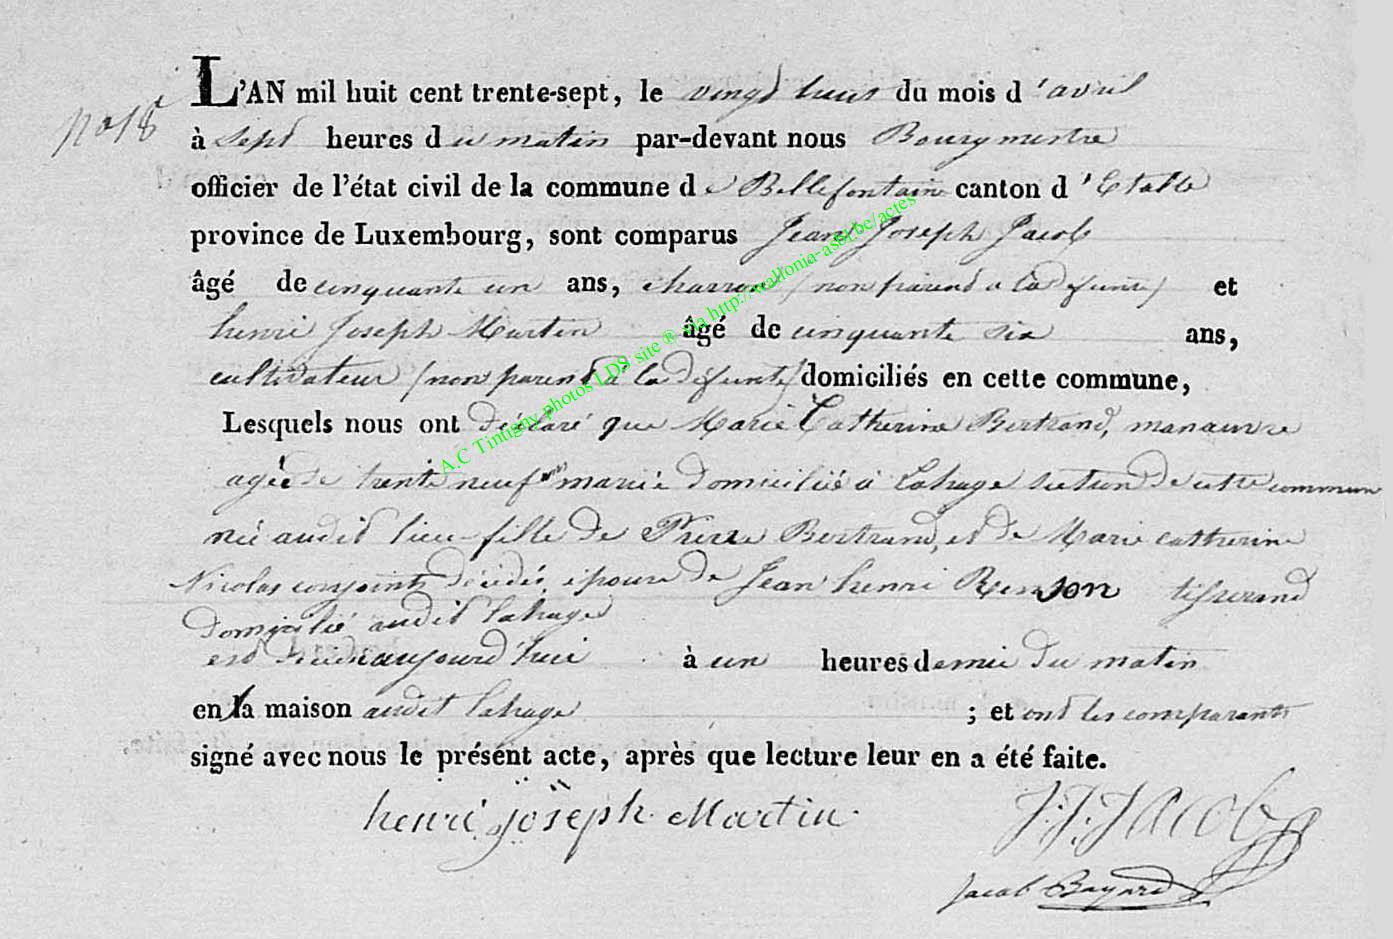 no 18
L'AN mil huit cent trente-sept, le vingt huit du mois d'avril
à sept heures du matin par-devant nous Bourgmestre
officier de l'état civil de la commune de Bellefontaine canton d'Etalle
province de Luxembourg, sont comparus Jean Joseph Jacob
âgé de cinquante un ans, charron (non parend a la défunte) et
henri Joseph Martin âgé de cinquante six ans,
cultivateur (non parend à la défunte) domiciliés en cette commune,
Lesquels nous ont déclaré que Marie Catherine Bertrand, manœuvre
agée de trente neuf mariée domiciliée à Lahage section de cette commune
née audit lieu fille de Pierre Bertrand, et de Marie catherine
Nicolas conjoints décédés, épouse de Jean henri Renson tisserand
domicilié audit Lahage
est décédée aujourd'hui à un heures demie du matin
en la maison audit Lahage ; et ont les comparants
signé avec nous le présent acte, après que lecture leur en a été faite.
henri joseph Martin. J.J. Jacob
Jacob Bayard
A.C Tintigny photos LDS site ® via http://wallonia-asbl.be/actes